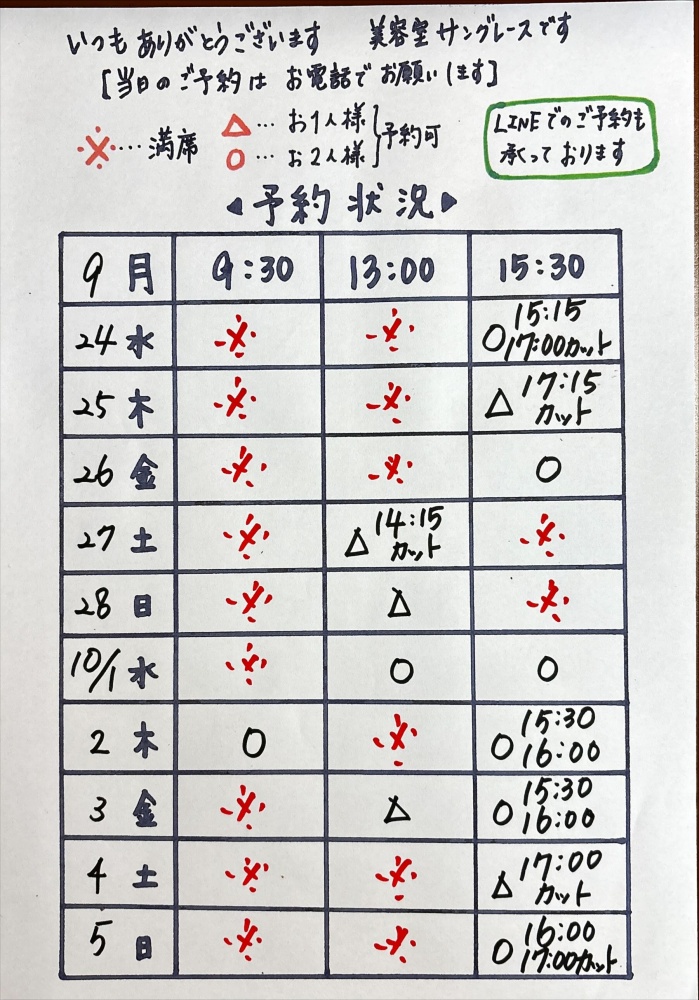 いつもありがとうございます 美容室サングレースです
[当日のご予約はお電話でお願いします]
※…満席
△…お1人様
○…お2人様
予約可
LINEでのご予約も
承っております
◀予約状況▶
9月 9:30 13:00 15:30
24水 ※ ※ ○15:15 17:00カット
25木 ※ ※ △17:15カット
26金 ※ ※ ○
27土 ※ △14:15カット ※
28日 ※ △ ※
10/1水 ※ ○ ○
2木 ○ ※ ○15:30 16:00
3金 ※ △ ○15:30 16:00
4土 ※ ※ △17:00カット
5日 ※ ※ ○16:00 17:00カット